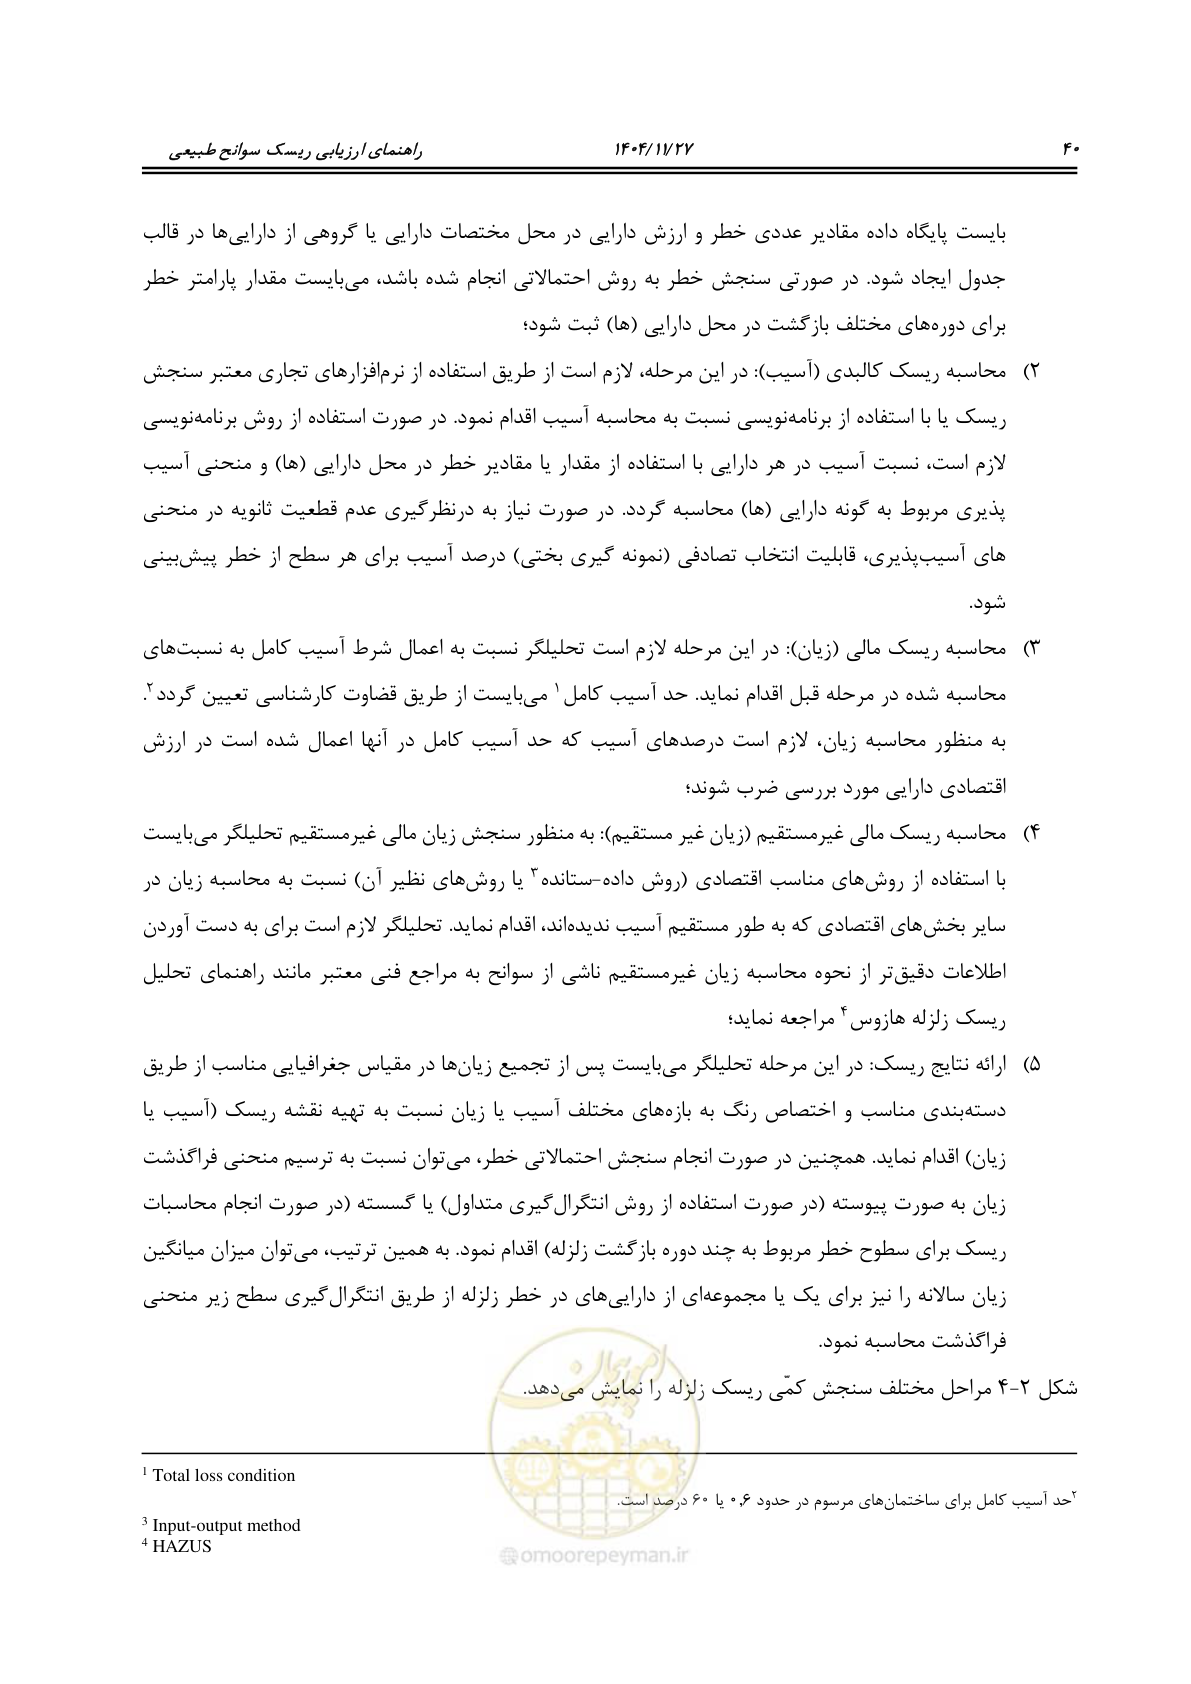 راهنمای ارزیابی ریسک سوانح طبیعی ۱۴۰۴/۱۱/۲۷ ۴۰
بایست پایگاه داده مقادیر عددی خطر و ارزش دارایی در محل مختصات دارایی یا گروهی از دارایی‌ها در قالب
جدول ایجاد شود. در صورتی سنجش خطر به روش احتمالاتی انجام شده باشد، می‌بایست مقدار پارامتر خطر
برای دوره‌های مختلف بازگشت در محل دارایی (ها) ثبت شود؛
۲) محاسبه ریسک کالبدی (آسیب): در این مرحله، لازم است از طریق استفاده از نرم‌افزارهای تجاری معتبر سنجش
ریسک یا با استفاده از برنامه‌نویسی نسبت به محاسبه آسیب اقدام نمود. در صورت استفاده از روش برنامه‌نویسی
لازم است، نسبت آسیب در هر دارایی با استفاده از مقدار یا مقادیر خطر در محل دارایی (ها) و منحنی آسیب
پذیری مربوط به گونه دارایی (ها) محاسبه گردد. در صورت نیاز به درنظرگیری عدم قطعیت ثانویه در منحنی
های آسیب‌پذیری، قابلیت انتخاب تصادفی (نمونه گیری بختی) درصد آسیب برای هر سطح از خطر پیش‌بینی
شود.
۳) محاسبه ریسک مالی (زیان): در این مرحله لازم است تحلیلگر نسبت به اعمال شرط آسیب کامل به نسبت‌های
محاسبه شده در مرحله قبل اقدام نماید. حد آسیب کامل۱ می‌بایست از طریق قضاوت کارشناسی تعیین گردد۲.
به منظور محاسبه زیان، لازم است درصدهای آسیب که حد آسیب کامل در آنها اعمال شده است در ارزش
اقتصادی دارایی مورد بررسی ضرب شوند؛
۴) محاسبه ریسک مالی غیرمستقیم (زیان غیر مستقیم): به منظور سنجش زیان مالی غیرمستقیم تحلیلگر می‌بایست
با استفاده از روش‌های مناسب اقتصادی (روش داده-ستانده۳ یا روش‌های نظیر آن) نسبت به محاسبه زیان در
سایر بخش‌های اقتصادی که به طور مستقیم آسیب ندیده‌اند، اقدام نماید. تحلیلگر لازم است برای به دست آوردن
اطلاعات دقیق‌تر از نحوه محاسبه زیان غیرمستقیم ناشی از سوانح به مراجع فنی معتبر مانند راهنمای تحلیل
ریسک زلزله هازوس۴ مراجعه نماید؛
۵) ارائه نتایج ریسک: در این مرحله تحلیلگر می‌بایست پس از تجمیع زیان‌ها در مقیاس جغرافیایی مناسب از طریق
دسته‌بندی مناسب و اختصاص رنگ به بازه‌های مختلف آسیب یا زیان نسبت به تهیه نقشه ریسک (آسیب یا
زیان) اقدام نماید. همچنین در صورت انجام سنجش احتمالاتی خطر، می‌توان نسبت به ترسیم منحنی فراگذشت
زیان به صورت پیوسته (در صورت استفاده از روش انتگرال‌گیری متداول) یا گسسته (در صورت انجام محاسبات
ریسک برای سطوح خطر مربوط به چند دوره بازگشت زلزله) اقدام نمود. به همین ترتیب، می‌توان میزان میانگین
زیان سالانه را نیز برای یک یا مجموعه‌ای از دارایی‌های در خطر زلزله از طریق انتگرال‌گیری سطح زیر منحنی
فراگذشت محاسبه نمود.
شکل ۲-۴ مراحل مختلف سنجش کمّی ریسک زلزله را نمایش می‌دهد.
امور پیمان
1 Total loss condition
۲حد آسیب کامل برای ساختمان‌های مرسوم در حدود ۰٫۶ یا ۶۰ درصد است.
3 Input-output method
4 HAZUS
@omoorepeyman.ir